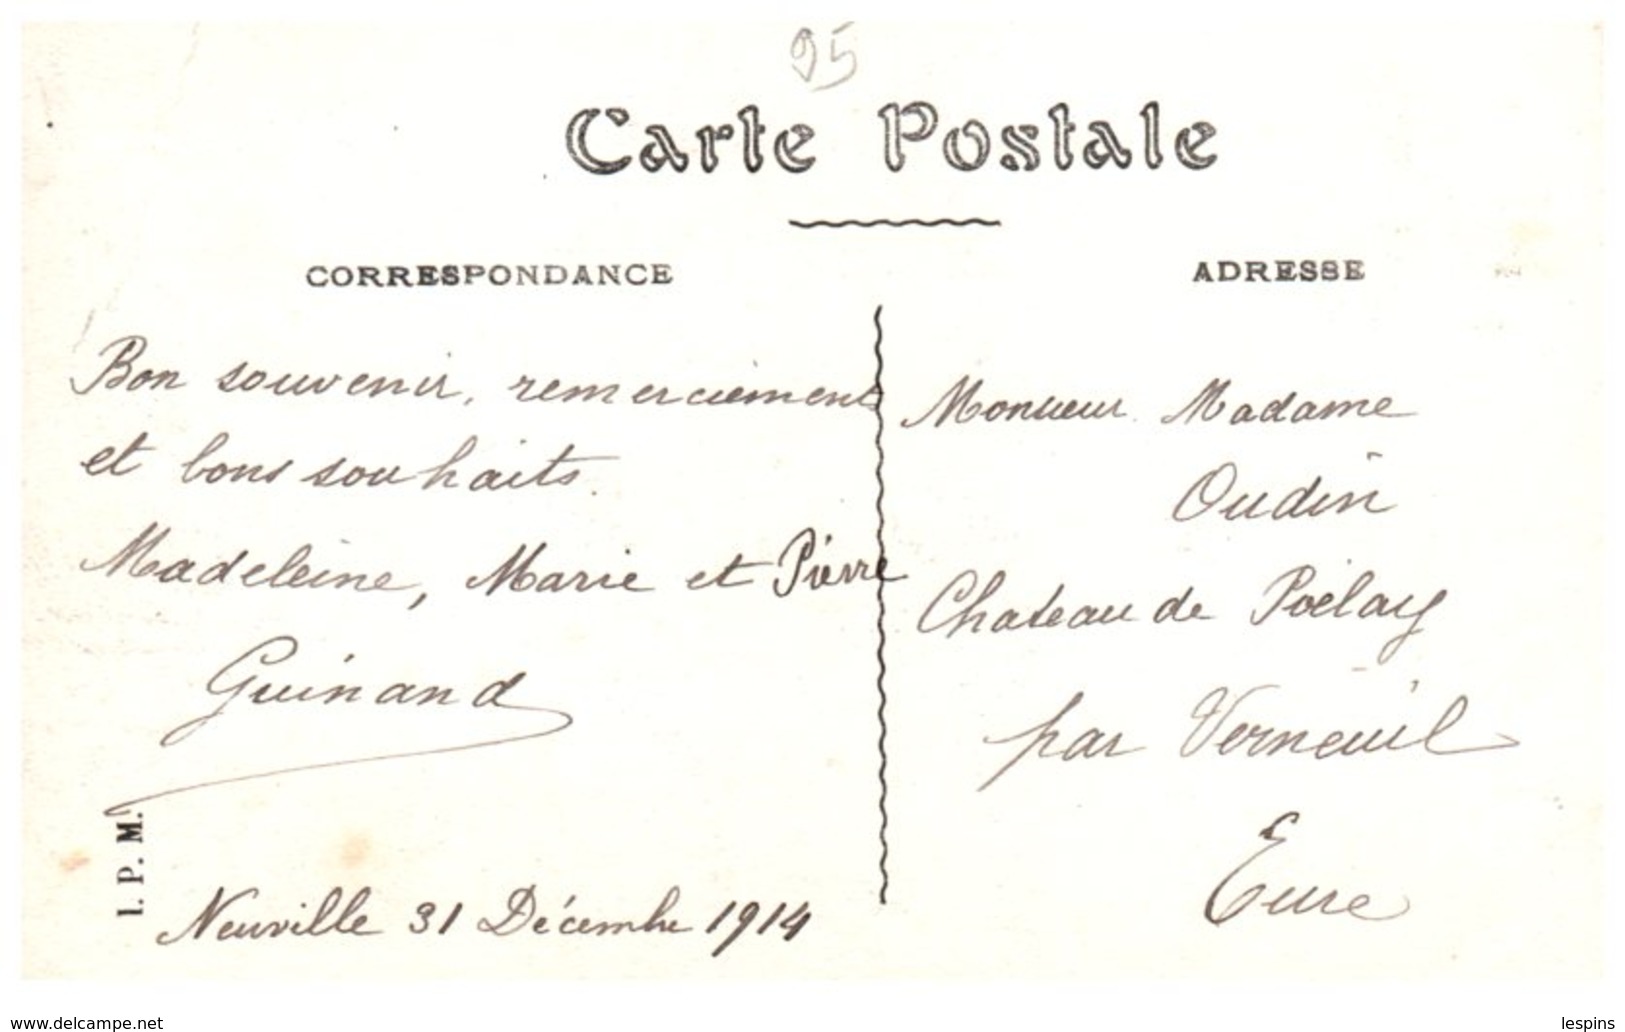 95
Carte Postale
CORRESPONDANCE
Bon souvenir, remerciement
et bons souhaits.
Madeleine, Marie et Pierre
Guinand
I. P. M.
Neuville 31 Décembre 1914
ADRESSE
Monsieur Madame
Oudin
Chateau de Poëlay
par Verneuil
Eure
www.delcampe.net
lespins